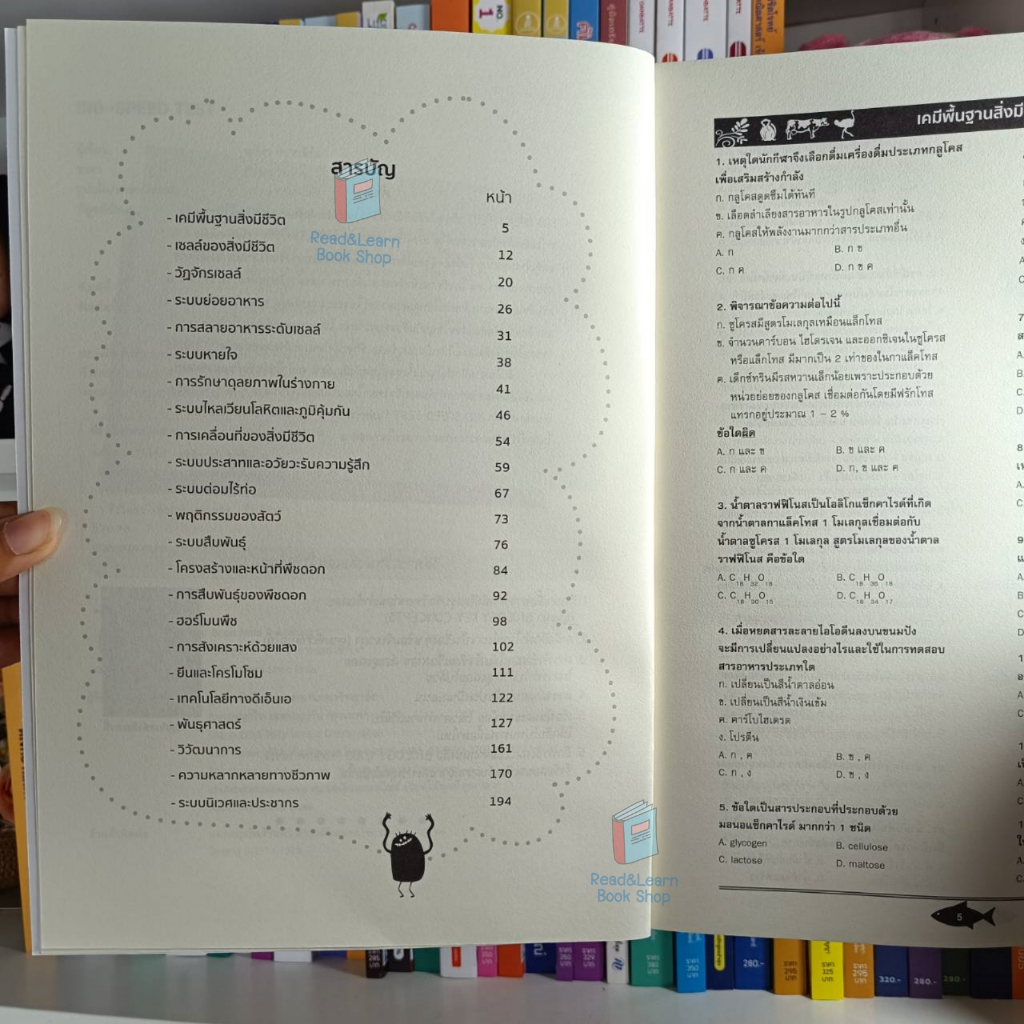 สารบัญ
หน้า
- เคมีพื้นฐานสิ่งมีชีวิต 5
- เซลล์ของสิ่งมีชีวิต 12
- วัฏจักรเซลล์ 20
- ระบบย่อยอาหาร 26
- การสลายอาหารระดับเซลล์ 31
- ระบบหายใจ 38
- การรักษาดุลยภาพในร่างกาย 41
- ระบบไหลเวียนโลหิตและภูมิคุ้มกัน 46
- การเคลื่อนที่ของสิ่งมีชีวิต 54
- ระบบประสาทและอวัยวะรับความรู้สึก 59
- ระบบต่อมไร้ท่อ 67
- พฤติกรรมของสัตว์ 73
- ระบบสืบพันธุ์ 76
- โครงสร้างและหน้าที่พืชดอก 84
- การสืบพันธุ์ของพืชดอก 92
- ฮอร์โมนพืช 98
- การสังเคราะห์ด้วยแสง 102
- ยีนและโครโมโซม 111
- เทคโนโลยีทางดีเอ็นเอ 122
- พันธุศาสตร์ 127
- วิวัฒนาการ 161
- ความหลากหลายทางชีวภาพ 170
- ระบบนิเวศและประชากร 194
Read&Learn
Book Shop
เคมีพื้นฐานสิ่งมี
1. เหตุใดนักกีฬาจึงเลือกดื่มเครื่องดื่มประเภทกลูโคส
เพื่อเสริมสร้างกำลัง
ก. กลูโคสดูดซึมได้ทันที
ข. เลือดลำเลียงสารอาหารในรูปกลูโคสเท่านั้น
ค. กลูโคสให้พลังงานมากกว่าสารประเภทอื่น
A. ก B. ก ข
C. ก ค D. ก ข ค
2. พิจารณาข้อความต่อไปนี้
ก. ซูโครสมีสูตรโมเลกุลเหมือนแล็กโทส
ข. จำนวนคาร์บอน ไฮโดรเจน และออกซิเจนในซูโครส
หรือแล็กโทส มีมากเป็น 2 เท่าของในกาแล็คโทส
ค. เด็กซ์ทรินมีรสหวานเล็กน้อยเพราะประกอบด้วย
หน่วยย่อยของกลูโคส เชื่อมต่อกันโดยมีฟรักโทส
แทรกอยู่ประมาณ 1 – 2 %
ข้อใดผิด
A. ก และ ข B. ข และ ค
C. ก และ ค D. ก, ข และ ค
3. น้ำตาลราฟฟิโนสเป็นโอลิโกแซ็กคาไรด์ที่เกิด
จากน้ำตาลกาแล็คโทส 1 โมเลกุลเชื่อมต่อกับ
น้ำตาลซูโครส 1 โมเลกุล สูตรโมเลกุลของน้ำตาล
ราฟฟิโนส คือข้อใด
A. C18H32O16 B. C18H36O18
C. C18H30O15 D. C18H34O17
4. เมื่อหยดสารละลายไอโอดีนลงบนขนมปัง
จะมีการเปลี่ยนแปลงอย่างไรและใช้ในการทดสอบ
สารอาหารประเภทใด
ก. เปลี่ยนเป็นสีน้ำตาลอ่อน
ข. เปลี่ยนเป็นสีน้ำเงินเข้ม
ค. คาร์โบไฮเดรต
ง. โปรตีน
A. ก , ค B. ข , ค
C. ก , ง D. ข , ง
5. ข้อใดเป็นสารประกอบที่ประกอบด้วย
มอนอแซ็กคาไรด์ มากกว่า 1 ชนิด
A. glycogen B. cellulose
C. lactose D. maltose
5
Read&Learn
Book Shop